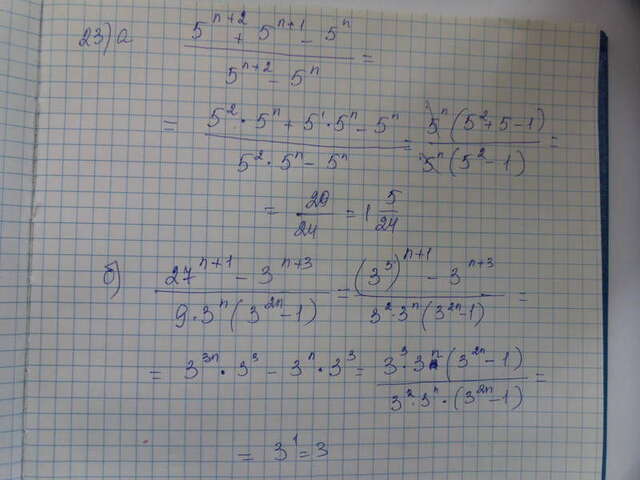 23) а (5^(n+2) + 5^(n+1) - 5^n) / (5^(n+2) - 5^n) =
= (5^2 · 5^n + 5^1 · 5^n - 5^n) / (5^2 · 5^n - 5^n) = 5^n (5^2 + 5 - 1) / 5^n (5^2 - 1) =
= 29/24 = 1 5/24
б) (27^(n+1) - 3^(n+3)) / (9 · 3^n (3^(2n) - 1)) = ((3^3)^(n+1) - 3^(n+3)) / (3^2 · 3^n (3^(2n) - 1)) =
= 3^(3n) · 3^3 - 3^n · 3^3 = (3^3 · 3^n (3^(2n) - 1)) / (3^2 · 3^n · (3^(2n) - 1)) =
= 3^1 = 3